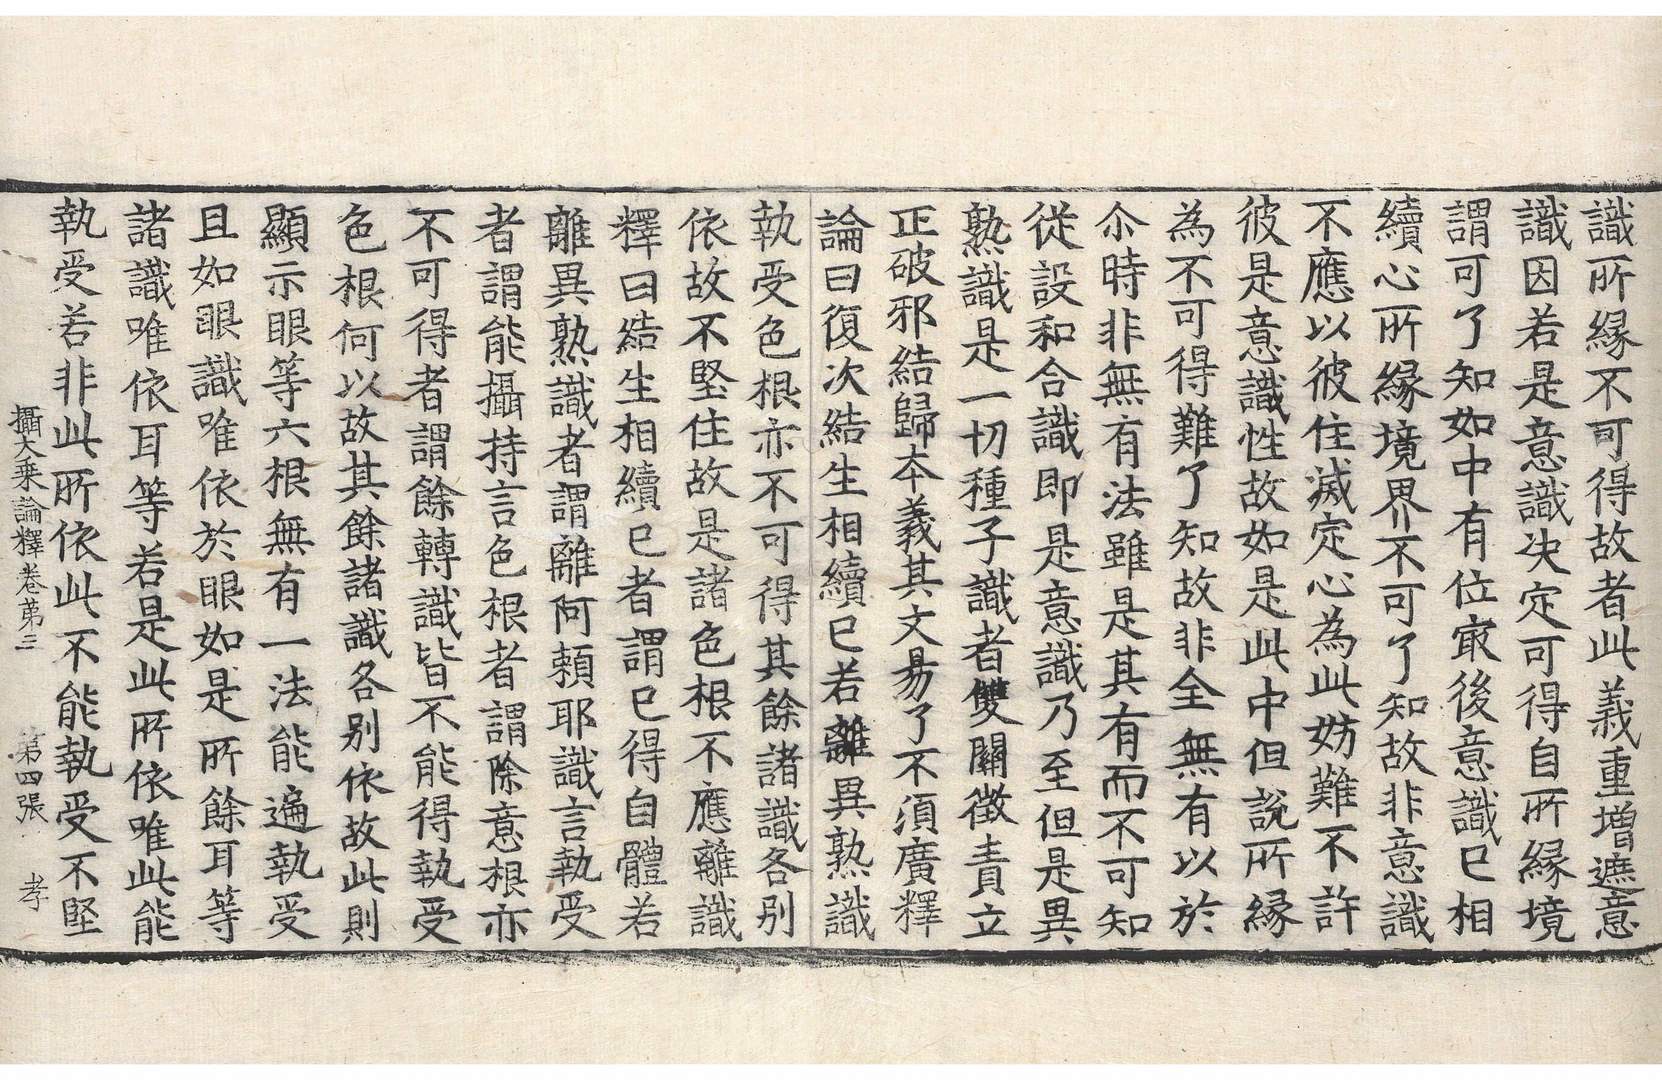 識所緣不可得故者此義重增遮意
識因若是意識决定可得自所緣境
謂可了知如中有位㝡後意識已相
續心所緣境界不可了知故非意識
不應以彼住滅定心為此妨難不許
彼是意識性故如是此中但說所緣
為不可得難了知故非全無有以於
尒時非無有法雖是其有而不可知
從設和合識即是意識乃至但是異
熟識是一切種子識者雙關徵責立
正破邪結歸本義其文易了不須廣釋
論曰復次結生相續已若離異熟識
執受色根亦不可得其餘諸識各別
依故不堅住故是諸色根不應離識
釋曰結生相續已者謂已得自體若
離異熟識者謂離阿賴耶識言執受
者謂能攝持言色根者謂除意根亦
不可得者謂餘轉識皆不能得執受
色根何以故其餘諸識各別依故此則
顯示眼等六根無有一法能遍執受
且如眼識唯依於眼如是所餘耳等
諸識唯依耳等若是此所依唯此能
執受若非此所依此不能執受不堅
攝大乘論釋卷第三 第四張 孝